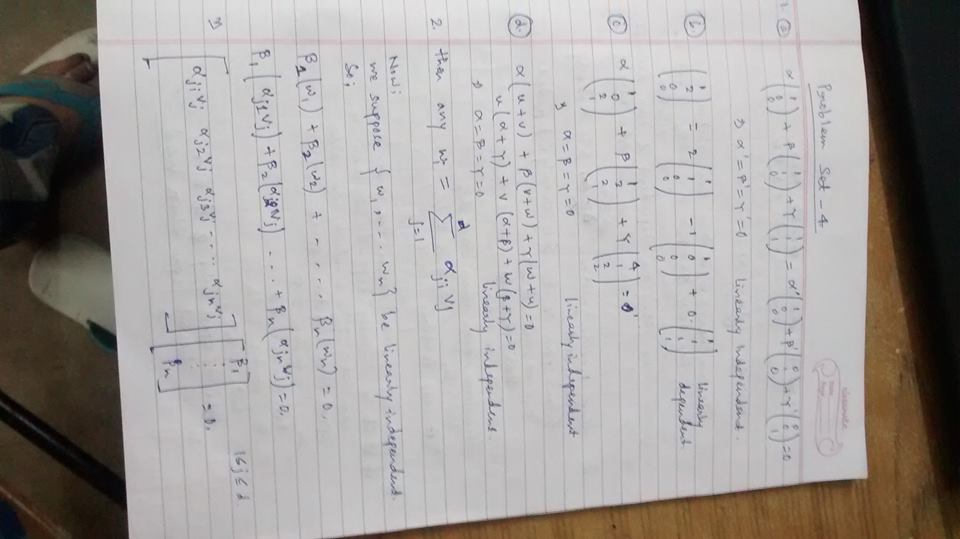 Problem Set - 4
1. (a) α(1 1 0) + β(1 0 1) + γ(0 1 1) = α'(1 0 0) + β'(0 1 0) + γ'(0 0 1) = 0
⇒ α' = β' = γ' = 0 linearly independent.
(b) = 2 - 1 + 0 · linearly dependent
(c) α(1 0 2) + β(1 2 1) + γ(4 1 2) = 0
⇒ α = β = γ = 0 linearly independent
(d) α(u+v) + β(v+w) + γ(w+u) = 0
u(α+γ) + v(α+β) + w(β+γ) = 0
⇒ α = β = γ = 0 linearly independent.
2. then any wᵢ = Σ_{j=1}^{d} α_{ji} v_j
Now;
we suppose {w₁ ..... wₙ} be linearly independent.
So;
β₁(w₁) + β₂(w₂) + - . . . . βₙ(wₙ) = 0.
β₁(α_{j1}v_j) + β₂(α_{j2}v_j) . . . + βₙ(α_{jn}v_j) = 0.
1 ≤ j ≤ d.
⇒ [α_{j1}v_j α_{j2}v_j α_{j3}v_j - . . . . α_{jn}v_j] [β₁ ⋮ βₙ] = 0.